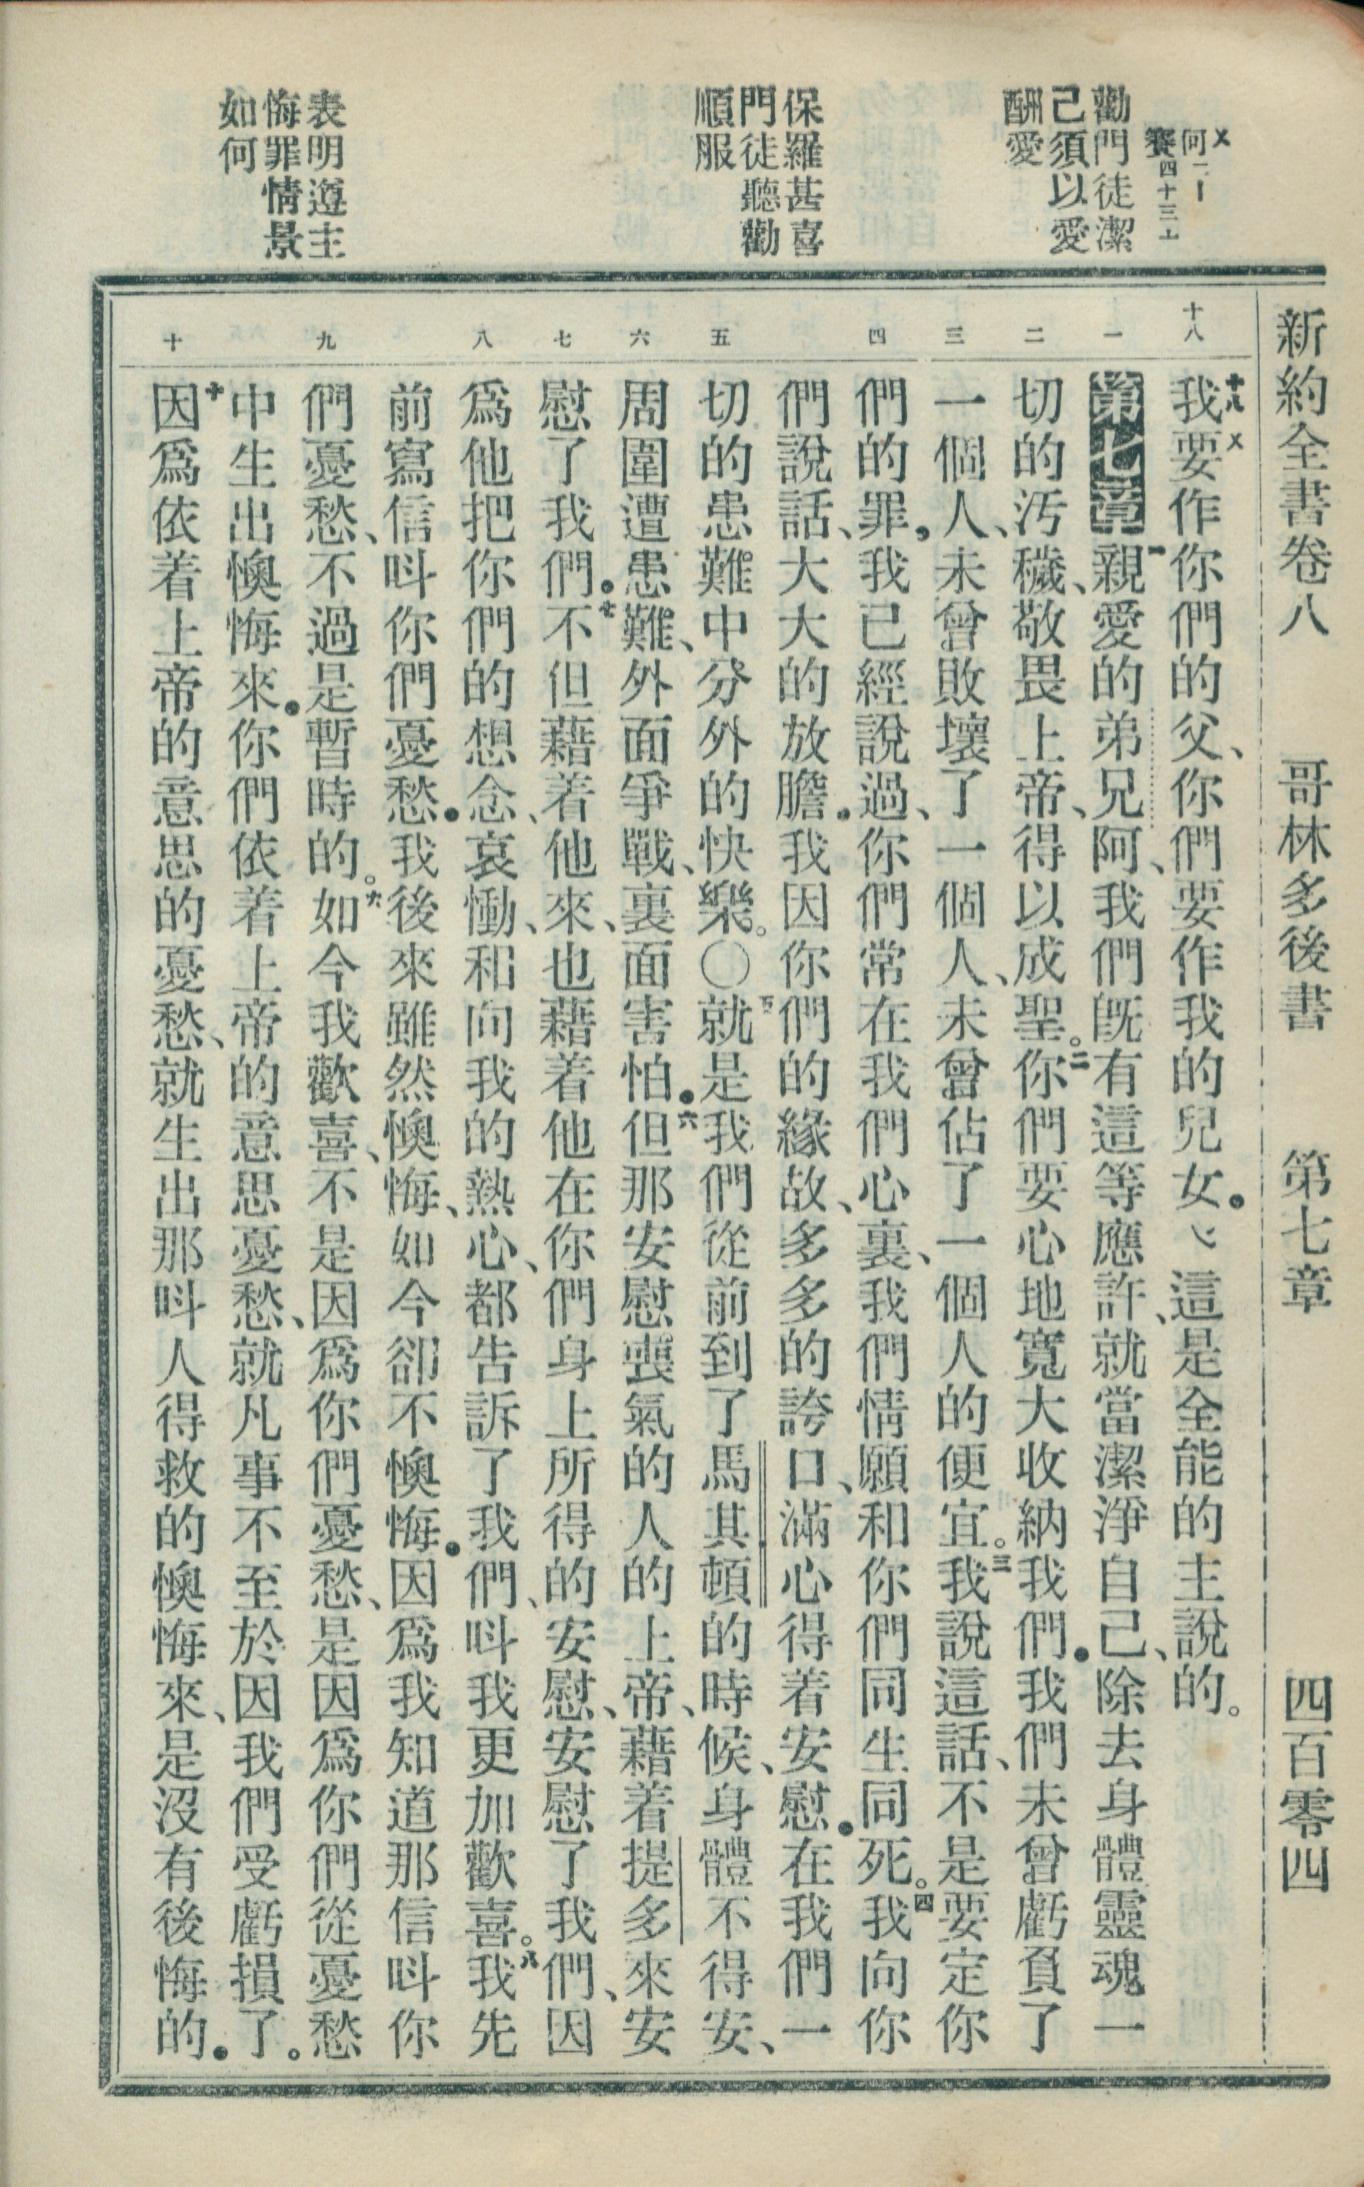 新約全書卷八　哥林多後書　第七章　四百零四
何一
賽四十三
勸門徒潔
己須以愛
酬愛
保羅甚喜
門徒聽勸
順服
表明遵主
悔罪情景
如何
十八 一 二 三 四 五 六 七 八 九 十
十八我要作你們的父、你們要作我的兒女。這是全能的主說的。
第七章 一親愛的弟兄阿、我們既有這等應許、就當潔淨自己、除去身體靈魂一
切的汚穢、敬畏上帝、得以成聖。二你們要心地寬大收納我們。我們未曾虧負了
一個人、未曾敗壞了一個人、未曾佔了一個人的便宜。三我說這話、不是要定你
們的罪。我已經說過、你們常在我們心裏、我們情願和你們同生同死。四我向你
們說話、大大的放膽。我因你們的緣故、多多的誇口、滿心得着安慰。在我們一
切的患難中分外的快樂。〇五就是我們從前到了馬其頓的時候、身體不得安、
周圍遭患難、外面爭戰、裏面害怕。六但那安慰喪氣的人的上帝、藉着提多來安
慰了我們。七不但藉着他來、也藉着他在你們身上所得的安慰、安慰了我們、因
爲他把你們的想念、哀慟、和向我的熱心、都告訴了我們、呌我更加歡喜。八我先
前寫信呌你們憂愁。我後來雖然懊悔、如今卻不懊悔。因爲我知道那信呌你
們憂愁、不過是暫時的。如今我歡喜、不是因爲你們憂愁、是因爲你們從憂愁
中生出懊悔來。你們依着上帝的意思憂愁、就凡事不至於因我們受虧損了。
十因爲依着上帝的意思的憂愁、就生出那呌人得救的懊悔來、是沒有後悔的。